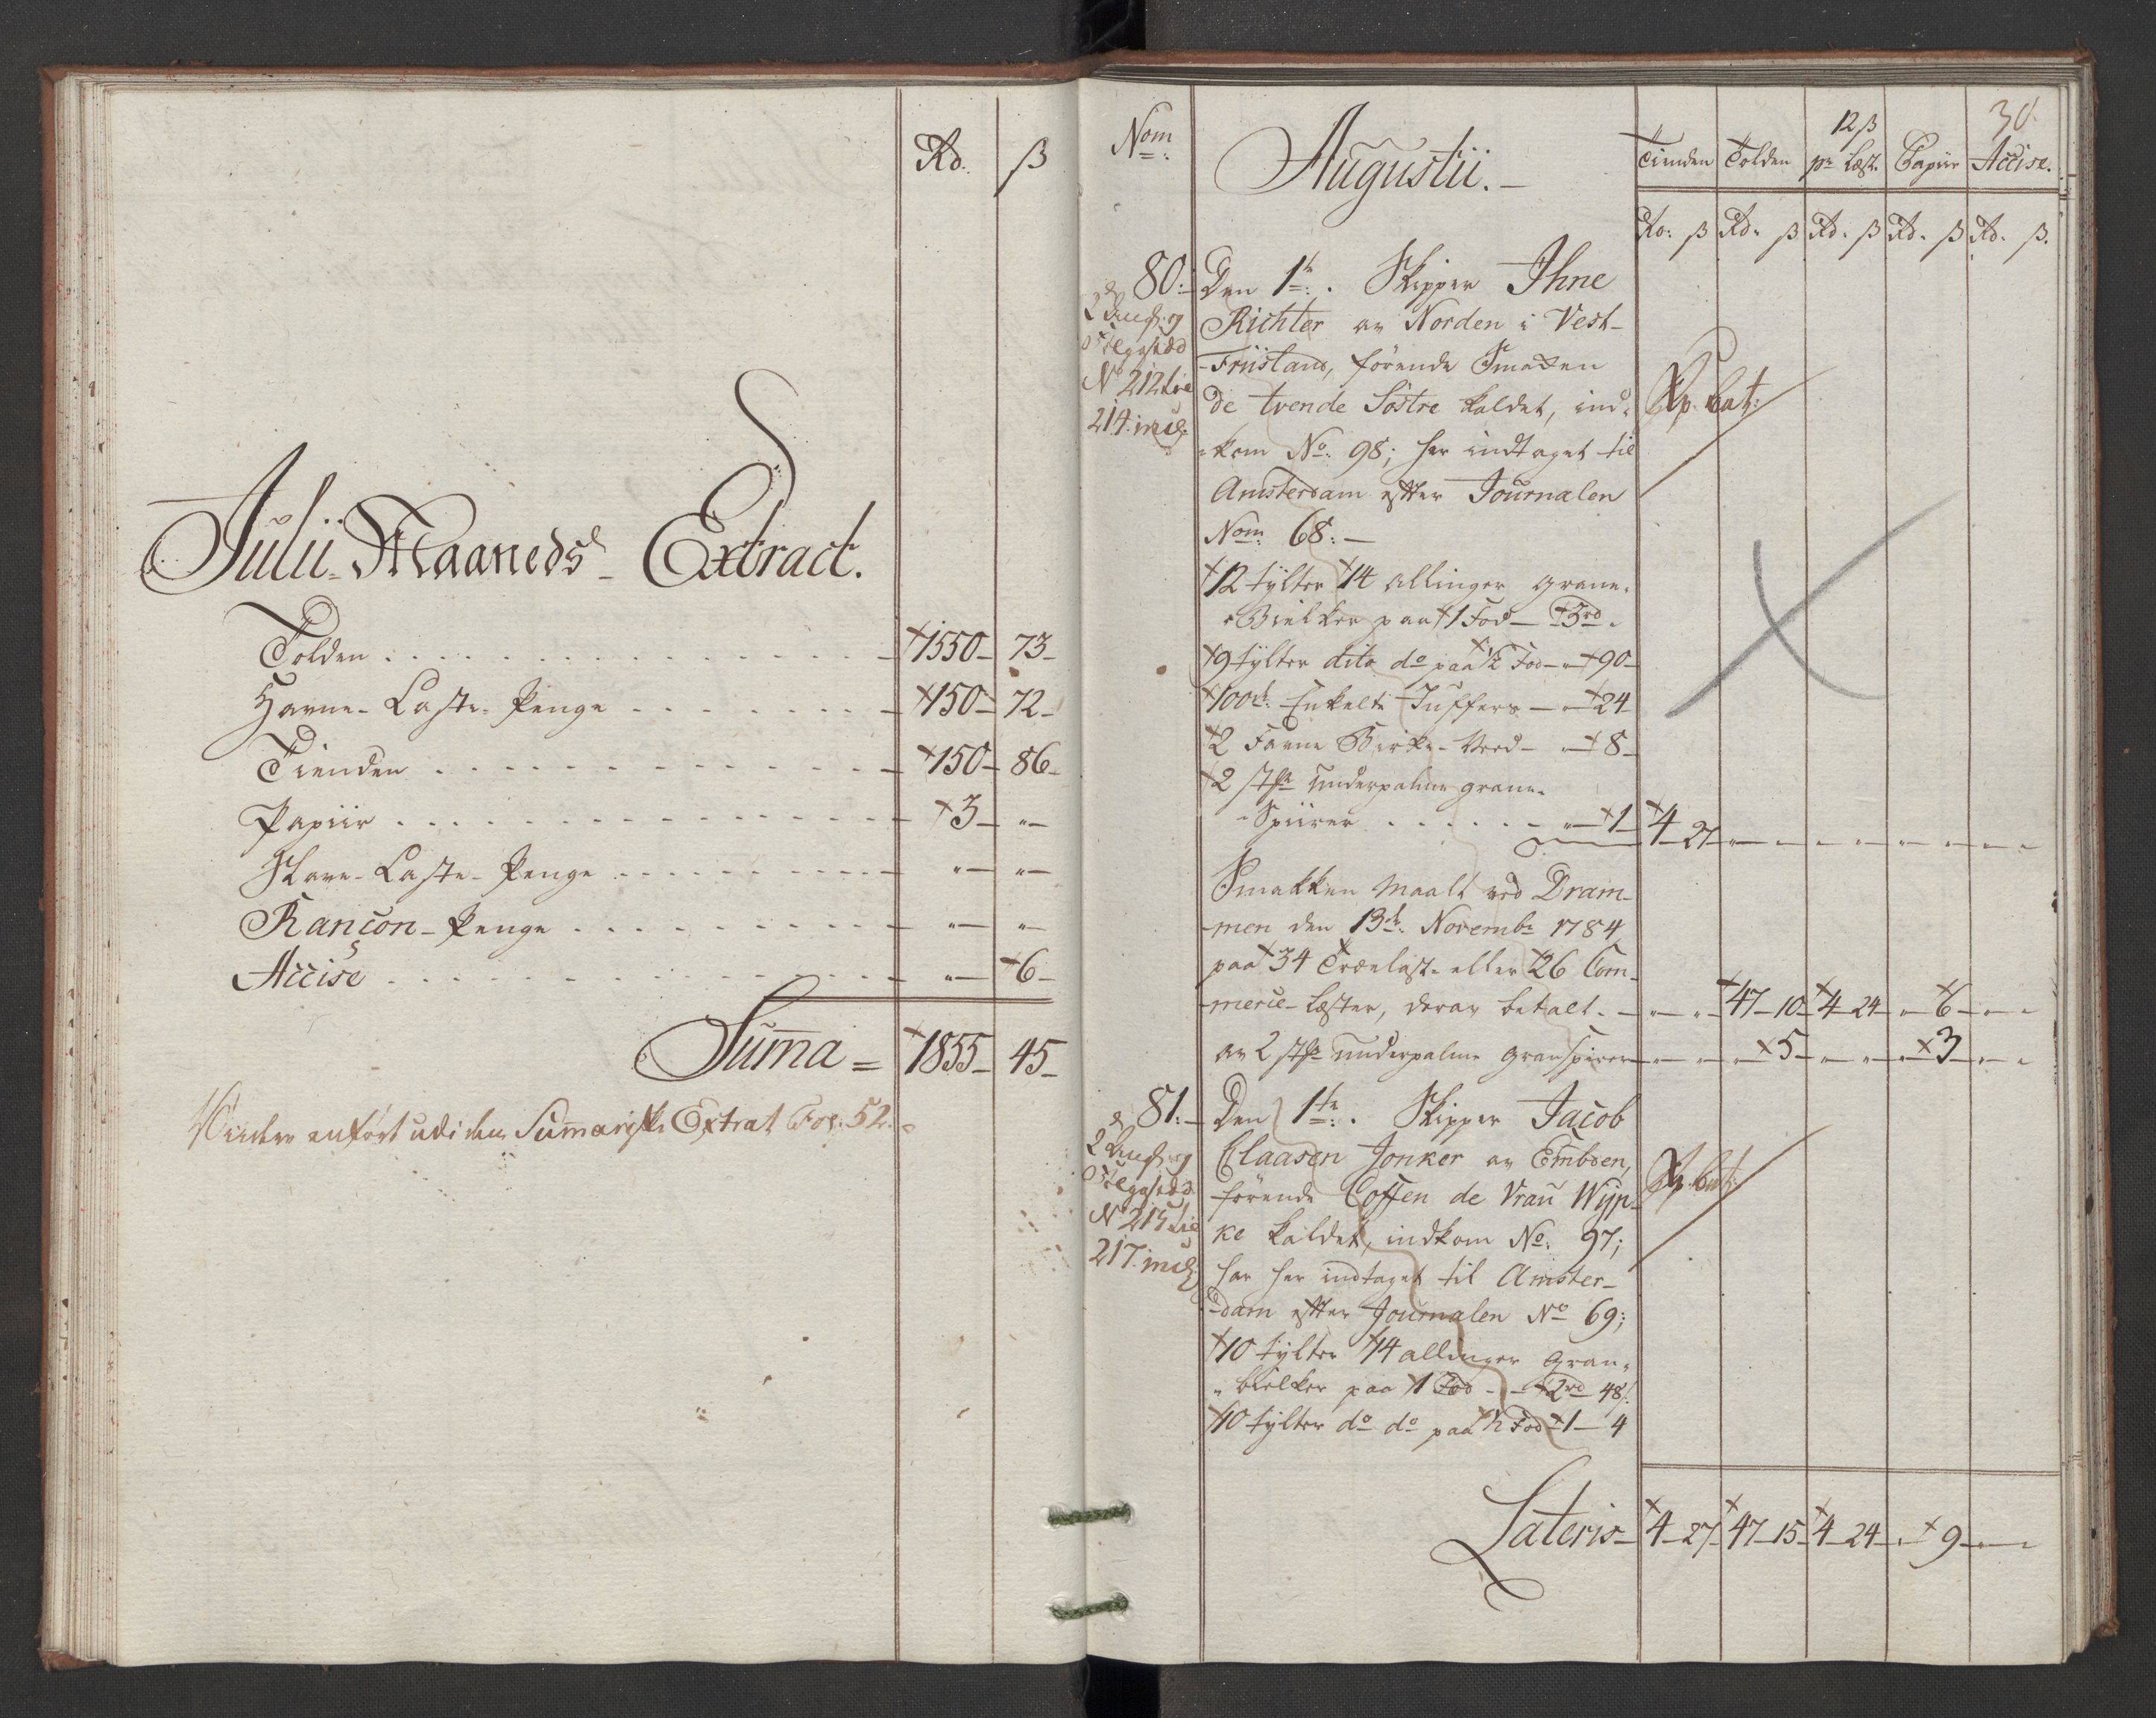 Rd. ß
Julii Maaneds Extract.
Tolden 1550 73
Havne-Laste-Penge 150 72
Tienden 150 86
Papiir 3 "
Slave-Laste-Penge " "
Rançon-Penge " "
Accise " 6
Suma = 1855 45
anført udi den Sumariske Extrat Fol: 52.
Nom
Augustii.
Tienden Tolden 12 ß pr Læst. Papiir Accise.
30.
Rd: ß Rd: ß Rd. ß Rd. ß Rd. ß.
80: Den 1te: Skipper Ihne
Richter av Norden i Vest-
-Friisland, førende Smakken
de tvende Søstre kaldet, ind-
-kom No: 98; har indtaget til
Amsterdam efter Journalen
Nom: 68:
No 212 tie
214 incl:
12 tylter 14 allinger grane-
-Bielker paa 1 Fod 3rd.
9 tylter dito do paa ½ Fod " 90
100d: Enkelte Juffers " 24
2 Favne Birke-Veed " 8
2 st: underpalme grane-
-Spiirer " 1 4 27
Smakken maalt ved Dram-
-men den 13de: Novembr 1784
paa 34 Trælæst. eller 26 Com-
-merce-Læster, derav betalt. 47 10 4 24 " 6
av 2 st: underpalme granspirer " 5 " 3
81: Den 1te: Skipper Jacob
Claasen Jonker av Embden,
førende Coffen de Vrau Wijp-
ke kaldet, indkom No: 97;
har her indtaget til Amster-
-dam efter Journalen No 69;
No 215 tie
217 incl:
10 tylter 14 allinger Gran-
-bielker paa 1 Fod 2rd 48ß.
10 tylter do do paa ½ Fod 1 4
Lateris 4 27 47 15 4 24 " 9